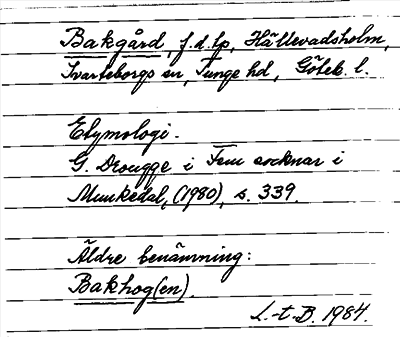 Bakgård, f.d. lp, Hällevadsholm,
Svarteborgs sn, Tunge hd, Göteb. l.
Etymologi.
G. Drougge i Fem socknar i
Munkedal, (1980), s. 339.
Äldre benämning:
Bakhog(en).
L.-t.-B. 1984.